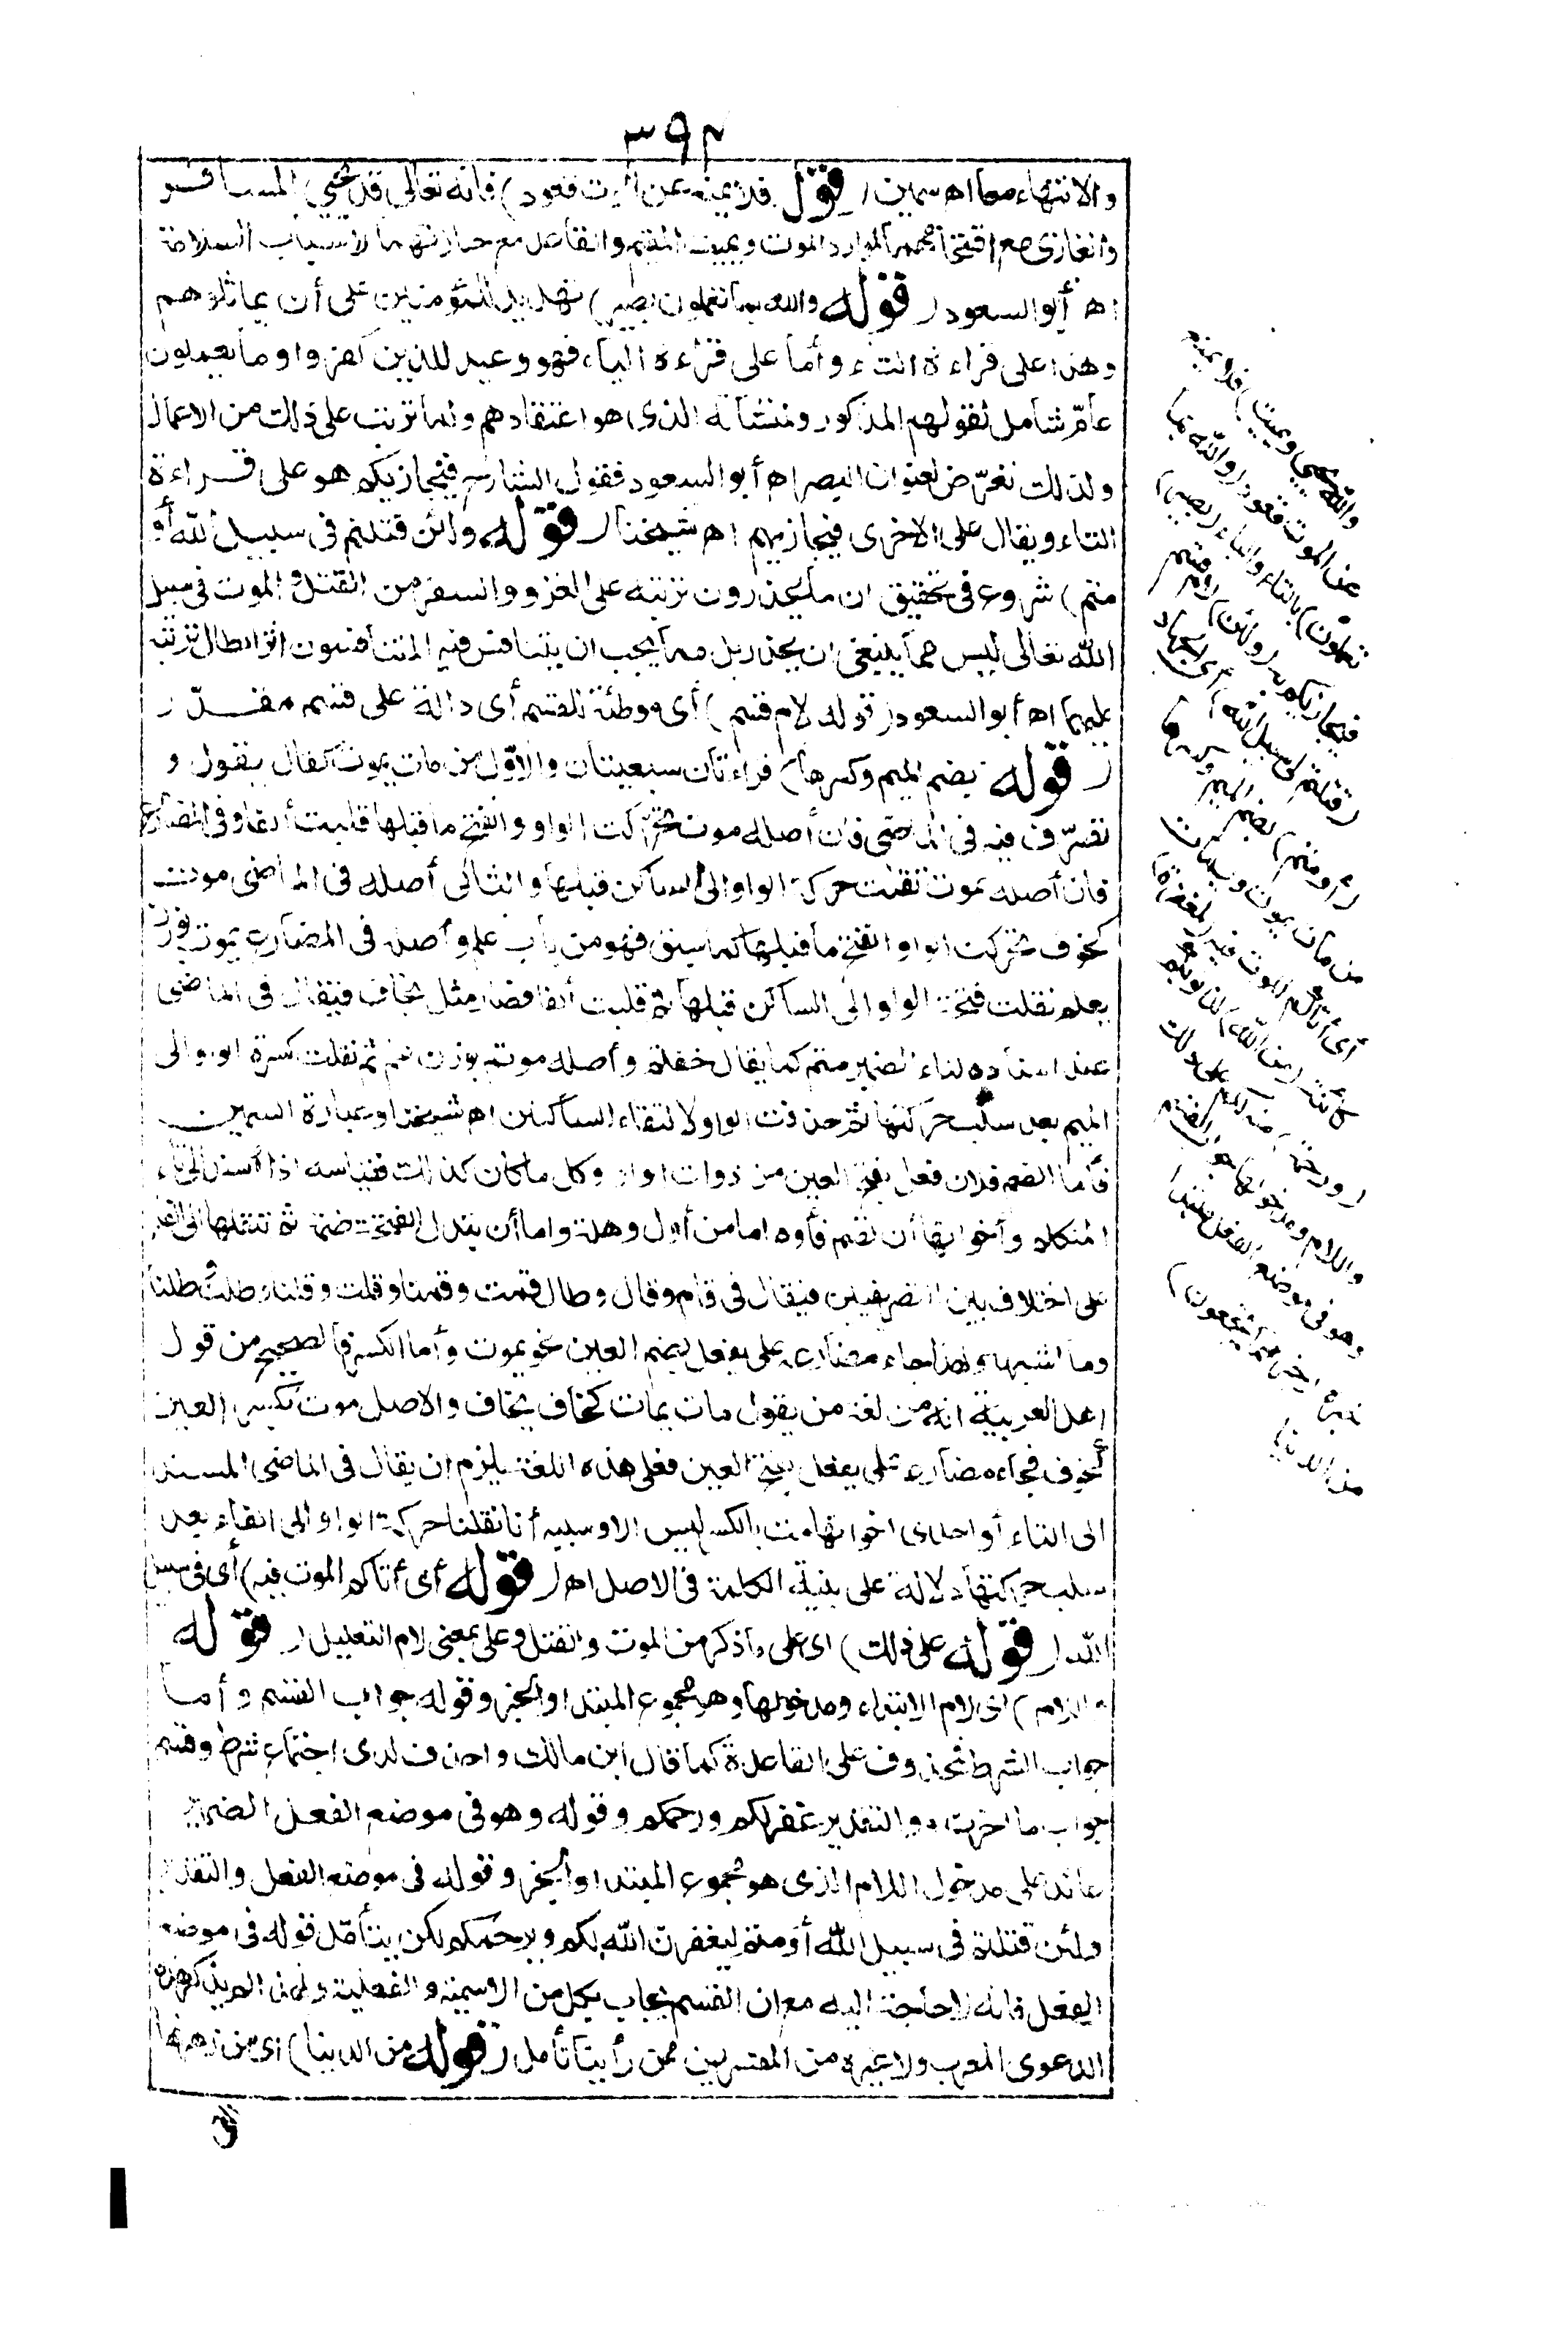 ٣٩٣
والانتهاء معا اهـ سمين (قوله فلا يمنع عن الموت قعود) فانه تعالى قد يحيى المسافر
والغازى مع اقتحامهما لموارد الموت ويميت المقيم والقاعد مع حيازتهما لاسباب السلامة
اهـ أبو السعود (قوله والله بما تعملون بصير) تهديد للمؤمنين على أن يماثلوهم
وهذا على قراءة التاء وأما على قراءة الياء فهو وعيد للذين كفروا وما يعملون
عام شامل لقولهم المذكور ومنشأه الذى هو اعتقادهم ولما ترتب على ذلك من الاعمال
ولذلك تعرّض لعنوان البصر اهـ أبو السعود فقول الشارح فيجازيكم هو على قراءة
التاء ويقال على الاخرى فيجازيهم اهـ شيخنا (قوله ولئن قتلتم فى سبيل الله أو
متم) شروع فى تحقيق ان ما يحذرون ترتبه على الغزو والسفر من القتل والموت فى سبيل
الله تعالى ليس مما ينبغى ان يحذر بل مما يجب ان يتنافس فيه المتنافسون اثر ابطال ترتبه
عليهما اهـ أبو السعود (قوله لام قسم) أى موطئة للقسم أى دالة على قسم مقدّر
(قوله بضم الميم وكسرها) قراءتان سبعيتان والاوّل من مات يموت كقال يقول و
تصرّف فيه فى الماضى فان أصله موت تحرّكت الواو وانفتح ما قبلها قلبت ألفا وفى المضارع
فان أصله يموت نقلت حركة الواو الى الساكن قبلها والثانى أصله فى الماضى موت
كخوف تحركت الواو وانفتح ما قبلها كما سبق فهو من باب علم وأصله فى المضارع يموت بوزن
يعلم نقلت فتحة الواو الى الساكن قبلها ثم قلبت ألفا فصار مثل يخاف فيقال فى الماضى
عند اسناده لتاء الضمير متم كما يقال خفتم وأصله موتم بوزن علمتم ثم نقلت كسرة الواو الى
الميم بعد سلب حركتها ثم حذفت الواو لالتقاء الساكنين اهـ شيخنا وعبارة السمين
فأما الضم فلان فعل بفتح العين من ذوات الواو وكل ما كان كذلك فقياسه اذا أسند الى تاء
المتكلم وأخواتها أن تضم فاؤه اما من أول وهلة واما أن يبدل الفتحة ضمة ثم تنقلها الى الفاء
على اختلاف بين التصريفيين فيقال فى قام وقال وطال قمت وقمنا وقلت وقلنا وطلت وطلنا
وما اشبهه ولهذا جاء مضارعه على يفعل بضم العين نحو يموت وأما الكسر فالصحيح من قول
اهل العربية انه من لغة من يقول مات يمات كخاف يخاف والاصل موت بكسر العين
كخوف فجاء مضارعه على يفعل بفتح العين فعلى هذه اللغة يلزم ان يقال فى الماضى المسند
الى التاء أو احدى اخواتها مت بالكسر ليس الا وسببه أنا نقلنا حركة الواو الى الفاء بعد
سلب حركتها دلالة على بنية الكلمة فى الاصل اهـ (قوله أى أتاكم الموت فيه) أى فى سبيل
الله (قوله على ذلك) اى على ما ذكر من الموت والقتل وعلى بمعنى لام التعليل (قوله
واللام) اى لام الابتداء ومدخولها وهو مجموع المبتدا والخبر وقوله جواب القسم وأما
جواب الشرط فمحذوف على القاعدة كما قال ابن مالك واحذف لدى اجتماع شرط وقسم
جواب ما اخرت والتقدير غفر لكم ورحمكم وقوله وهو فى موضع الفعل الضمير
عائد على مدخول اللام الذى هو مجموع المبتدا والخبر وقوله فى موضع الفعل والتقدير
ولئن قتلتم فى سبيل الله أو متم ليغفرن الله لكم ويرحمكم لكن يتأمّل قوله فى موضع
الفعل فانه لا حاجة اليه مع ان القسم يجاب بكل من الاسمية والفعلية ولهذا لم يذكر هذه
الدعوى المعرب ولا غيره من المفسرين ممن رأينا تأمل (قوله من الدنيا) اى من زهرتها
والله يحيى ويميت) فلا يمنع
عن الموت قعود (والله بما
تعملون) بالتاء والياء (بصير)
فيجازيكم به (ولئن) لام قسم
(قتلتم فى سبيل الله) أى الجهاد
(أو متم) بضم الميم وكسرها
من مات يموت ويمات
أى أتاكم الموت فيه (لمغفرة)
كائنة (من الله) لذنوبكم
(ورحمة) منه لكم على ذلك
واللام ومدخولها جواب القسم
وهو فى موضع الفعل مبتدأ
خبره (خير مما تجمعون)
من الدنيا